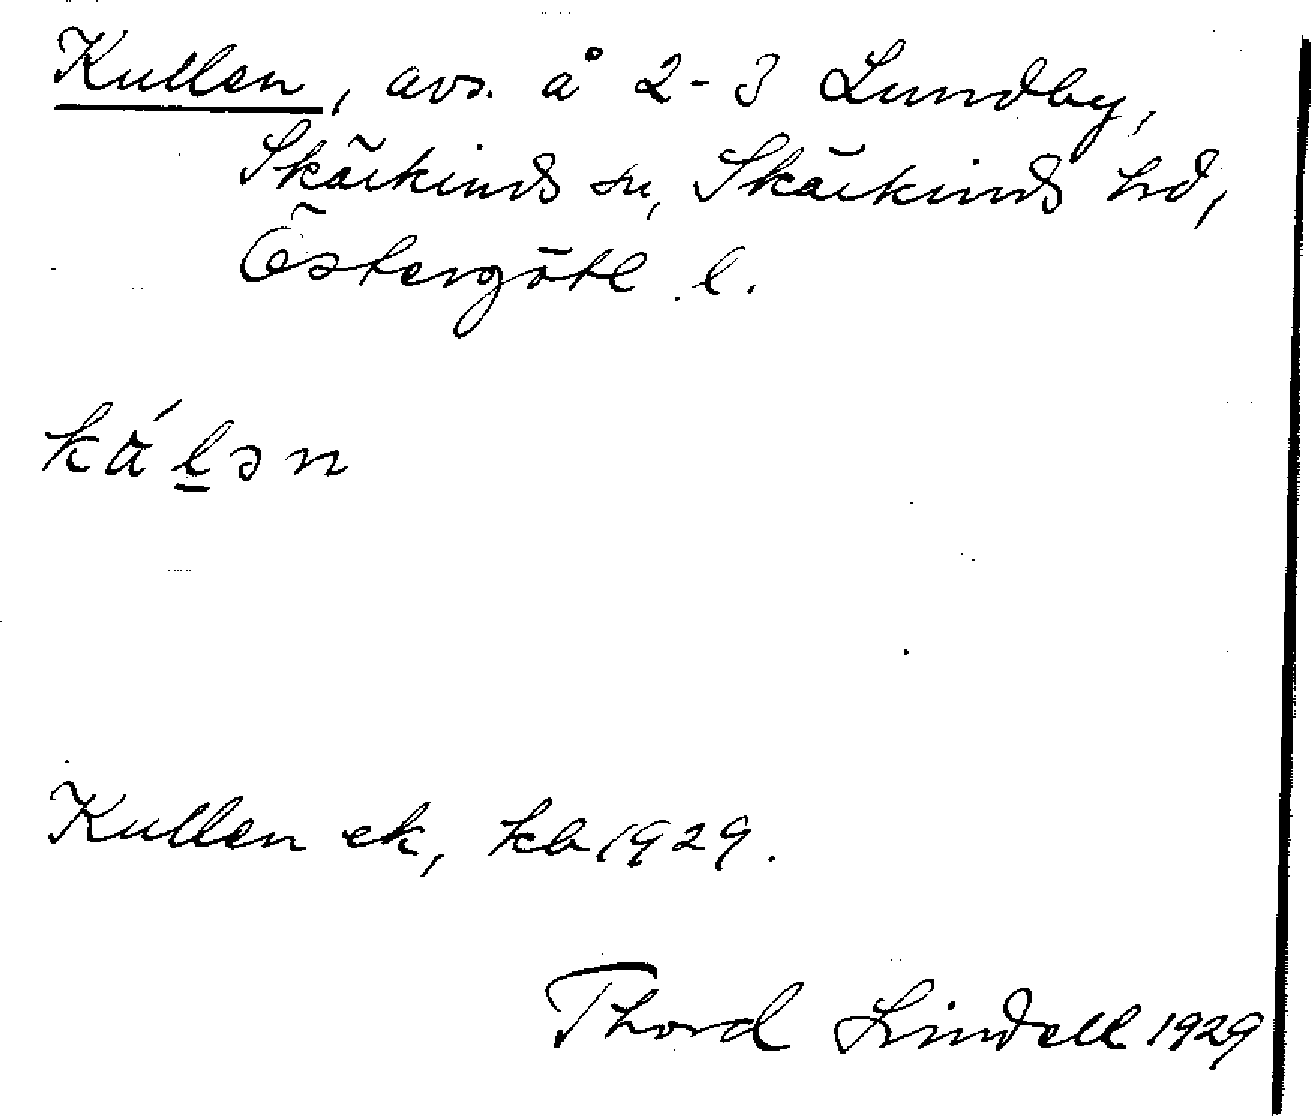 Kullen, avs. å 2-3 Lundby,
Skärkinds sn, Skärkinds hd,
Östergötl. l.
Kullen ek, kb 1929.
Thord Lindell 1929